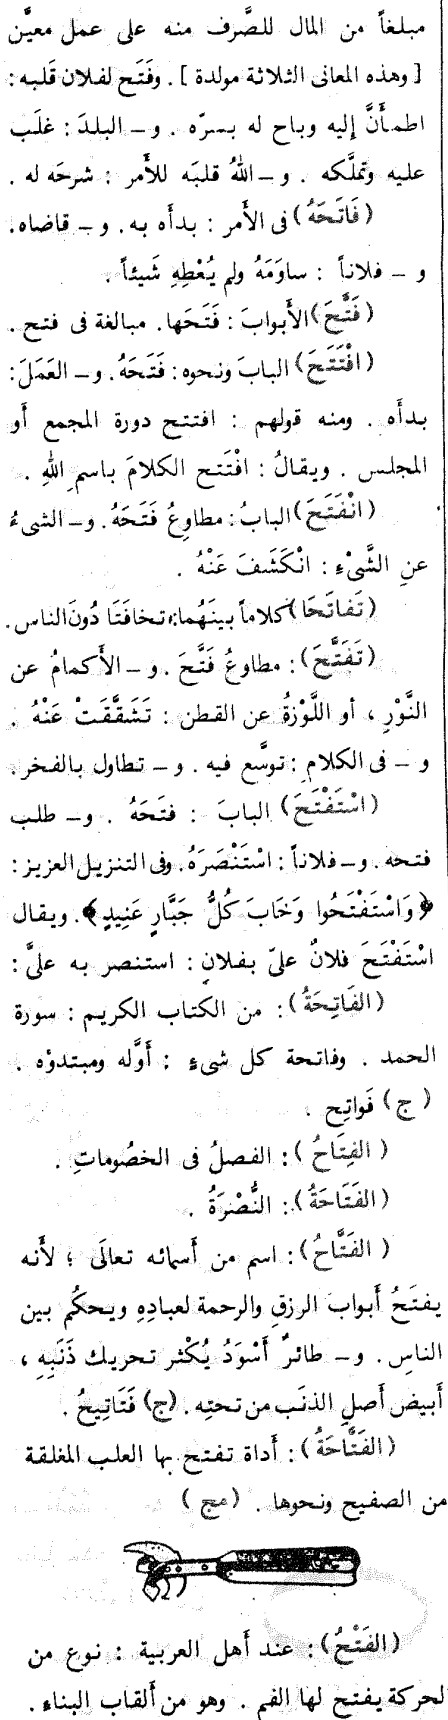 مبلغاً من المال للصَّرف منه على عمل معيَّن
[ وهذه المعانى الثلاثة مولدة ] . وفَتَح لفلان قَلبه :
اطمأَنَّ إليه وباح له بسرّه . و – البلدَ : غلَب
عليه وتملَّكه . و – اللهُ قلبَه للأَمر : شرحَه له .
( فَاتَحَهُ ) فى الأَمر : بدأَه به . و – قاضاه .
و – فلاناً : ساوَمَهُ ولم يُعْطِهِ شَيئاً .
( فَتَّحَ ) الأَبوابَ : فَتَحَها. مبالغة فى فتح .
( افْتَتَحَ ) البابَ ونحوه : فَتَحَهُ . و – العَمَلَ :
بدأَه . ومنه قولهم : افتتح دورة المجمع أَو
المجلس . ويقالُ : افْتَتح الكلامَ باسمِ اللهِ .
( انْفَتَحَ ) البابُ : مطاوِعُ فَتَحَهُ . و – الشىءُ
عنِ الشَّىْءِ : انْكَشَفَ عَنْهُ .
( تَفاتَحَا ) كلاماً بينَهُما : تخافَتَا دُونَ الناس .
( تَفَتَّحَ ) : مطاوعُ فَتَّحَ . و – الأَكمامُ عن
النَّوْرِ ، أو اللَّوْزةُ عن القطن : تَشَقَّقَتْ عَنْهُ .
و – فى الكلامِ : توسَّع فيه . و – تطاول بالفخر .
( اسْتَفْتَحَ ) البابَ : فتَحَهُ . و – طلب
فتحه . و – فلاناً : اسْتَنْصَرَهُ . وفى التنزيل العزيز :
﴿ وَاسْتَفْتَحُوا وَخَابَ كُلُّ جَبَّارٍ عَنِيدٍ ﴾ . ويقال
اسْتَفْتَحَ فلانٌ علىّ بفلانٍ : استنصر به علىَّ :
( الفَاتِحَةُ ) : من الكتاب الكريم : سورة
الحمد . وفاتحة كل شىءٍ : أَوَّله ومبتدؤه .
( ج ) فَواتِح .
( الفِتَاحُ ) : الفصلُ فى الخصُوماتِ .
( الفَتَاحَةُ ) : النُّصْرَةُ .
( الفَتَّاحُ ) : اسم من أَسمائه تعالَى ؛ لأَنه
يفتَحُ أَبوابَ الرزقِ والرحمة لعبادِهِ ويحكُم بين
الناسِ . و – طائرٌ أَسْوَدُ يُكْثر تحريك ذَنَبِهِ ،
أَبيض أَصلِ الذنَب من تحتِه . (ج) فَتَاتِيحُ .
( الفَتَّاحَةُ ) : أَداة تفتح بها العلب المغلقة
من الصفيح ونحوها . ( مج )
( الفَتْحُ ) : عند أَهل العربية : نوع من
لحركة يفتح لها الفم . وهو من أَلقاب البناءِ .